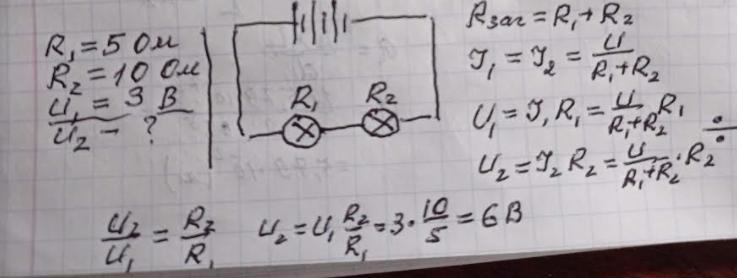 R₁ = 5 Ом
R₂ = 10 Ом
U₁ = 3 В
U₂ - ?
R₁ R₂
Rзаг = R₁ + R₂
I₁ = I₂ = U/(R₁+R₂)
U₁ = I₁R₁ = U/(R₁+R₂) R₁
÷
U₂ = I₂ R₂ = U/(R₁+R₂) · R₂
U₂/U₁ = R₂/R₁ U₂ = U₁ R₂/R₁ = 3 · 10/5 = 6 В